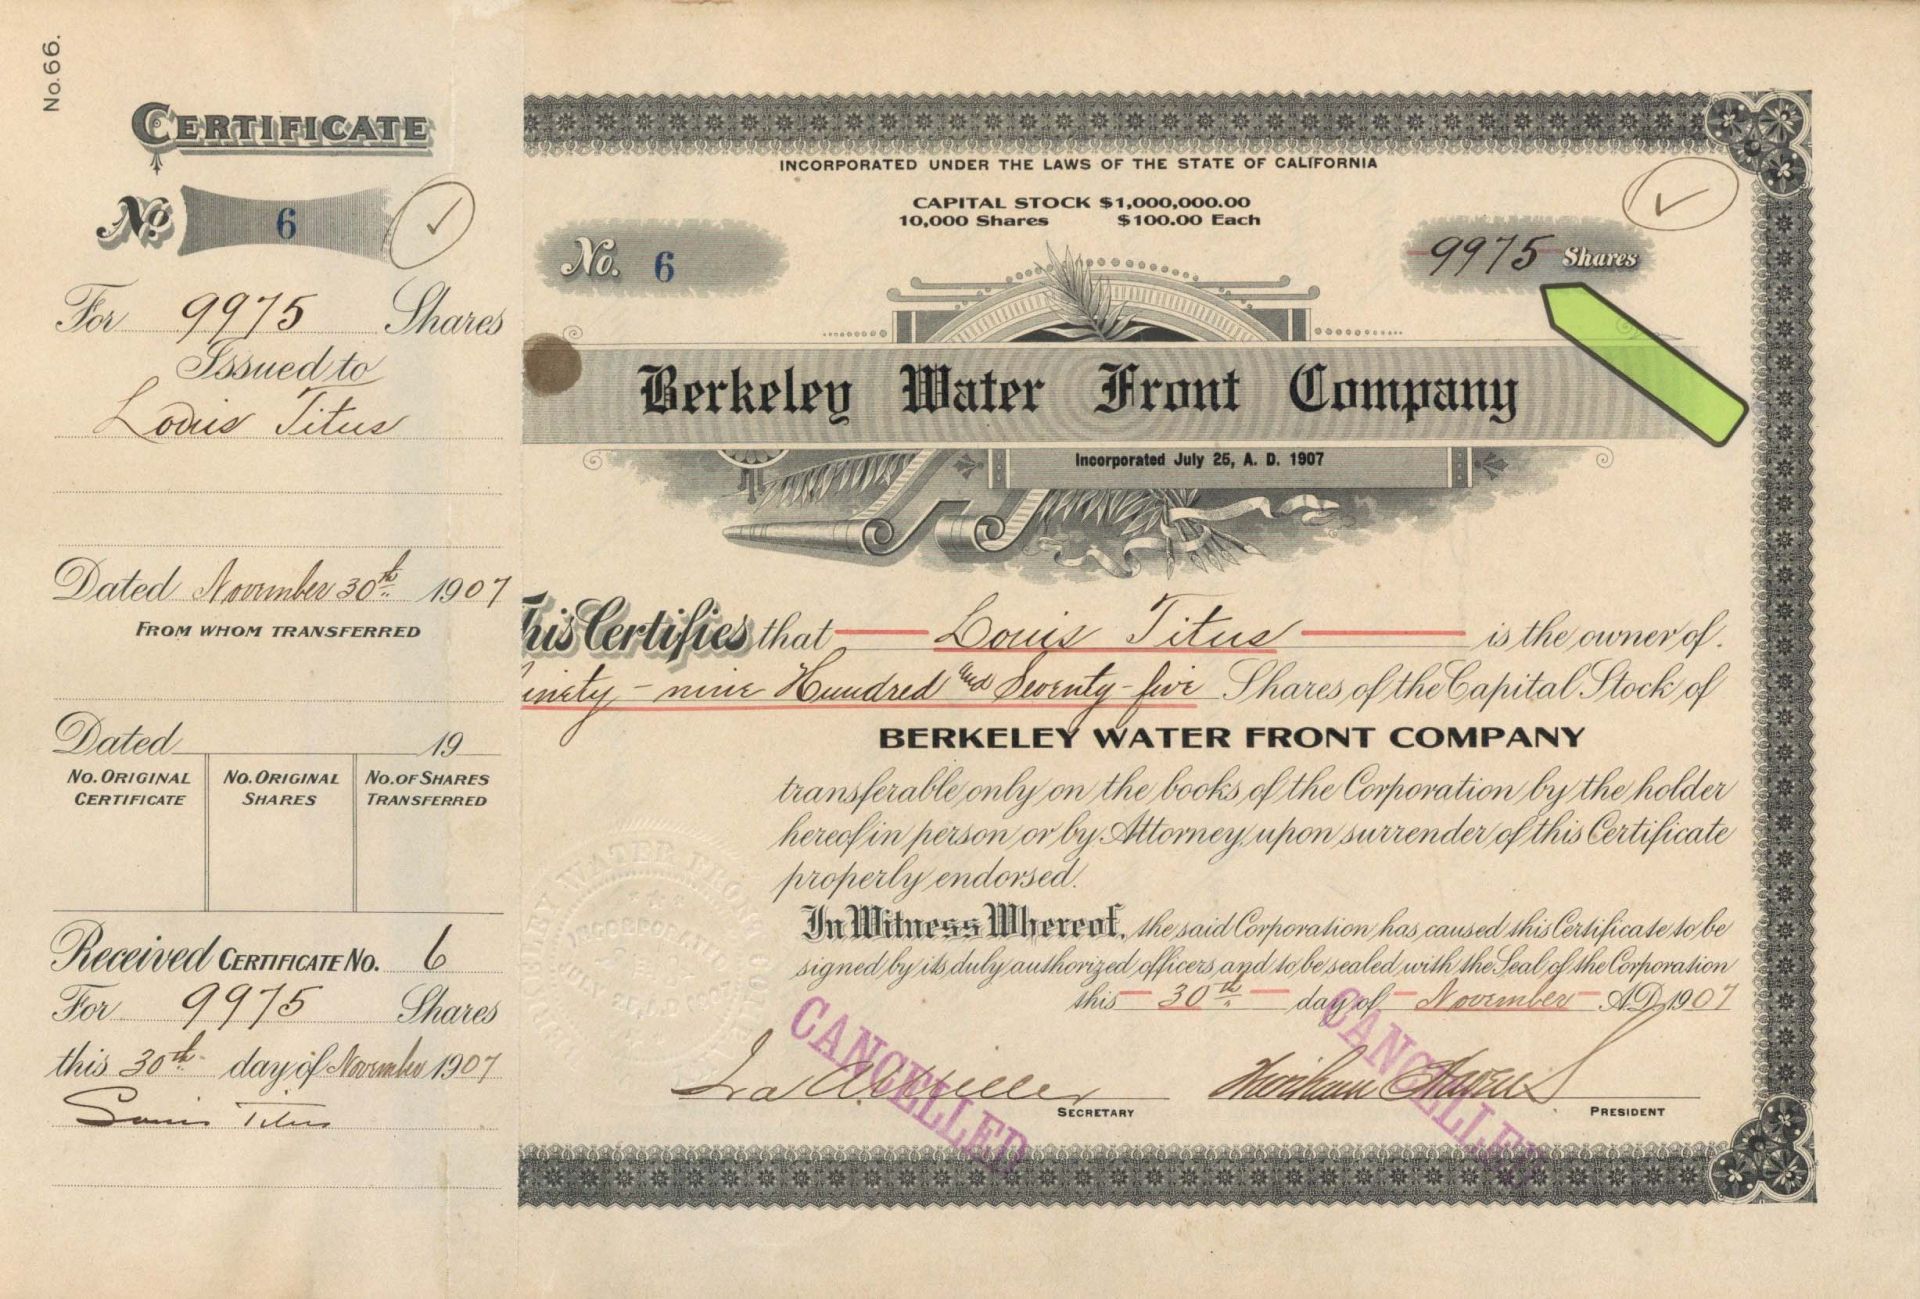 No. 66.
CERTIFICATE
No. 6
For 9975 Shares
Issued to
Louis Titus
Dated November 30th 1907
FROM WHOM TRANSFERRED
Dated 19
NO. ORIGINAL CERTIFICATE
NO. ORIGINAL SHARES
NO. OF SHARES TRANSFERRED
Received CERTIFICATE NO. 6
For 9975 Shares
this 30th day of November 1907
Louis Titus
INCORPORATED UNDER THE LAWS OF THE STATE OF CALIFORNIA
CAPITAL STOCK $1,000,000.00
10,000 Shares $100.00 Each
No. 6
9975 Shares
Berkeley Water Front Company
Incorporated July 25, A. D. 1907
his Certifies that Louis Titus is the owner of
inety-nine Hundred and Seventy-five Shares of the Capital Stock of
BERKELEY WATER FRONT COMPANY
transferable only on the books of the Corporation by the holder
hereof in person or by Attorney, upon surrender of this Certificate
properly endorsed.
In Witness Whereof, the said Corporation has caused this Certificate to be
signed by its duly authorized officers and to be sealed with the Seal of the Corporation
this 30th day of November A.D. 1907
WATER FRONT
INCORPORATED
JULY 25, A.D. 1907
CANCELLED
CANCELLED
SECRETARY
PRESIDENT